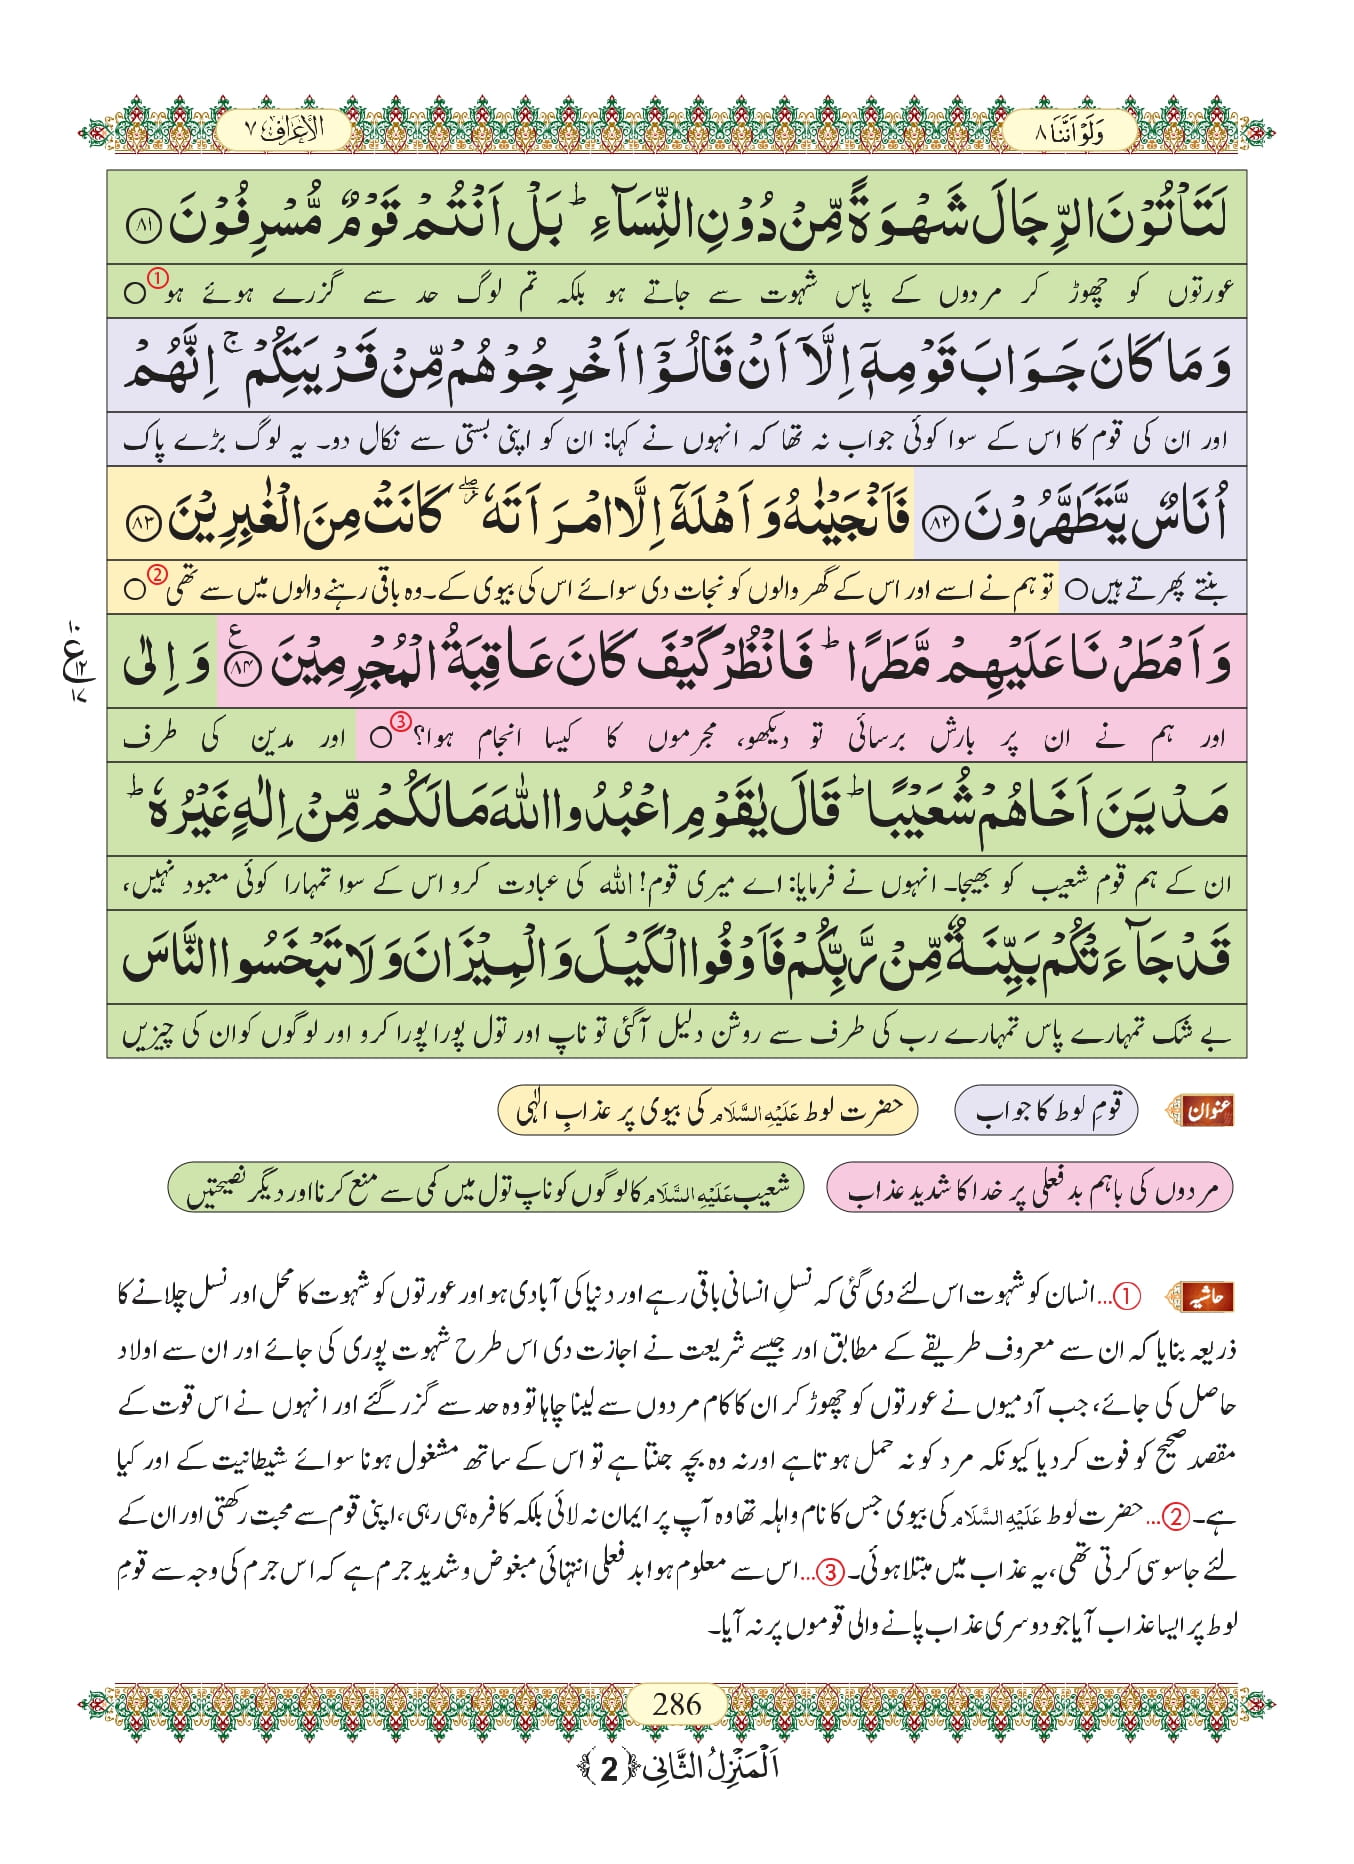 وَلَوْ اَنَّنَا ٨
الاعراف ٧
لَتَاْتُوْنَ الرِّجَالَ شَهْوَةً مِّنْ دُوْنِ النِّسَآءِ ؕ بَلْ اَنْتُمْ قَوْمٌ مُّسْرِفُوْنَ ﴿۸۱﴾
عورتوں کو چھوڑ کر مردوں کے پاس شہوت سے جاتے ہو بلکہ تم لوگ حد سے گزرے ہوئے ہو ① ○
وَ مَا كَانَ جَوَابَ قَوْمِهٖۤ اِلَّاۤ اَنْ قَالُوْۤا اَخْرِجُوْهُمْ مِّنْ قَرْیَتِكُمْ ۚ اِنَّهُمْ
اور ان کی قوم کا اس کے سوا کوئی جواب نہ تھا کہ انہوں نے کہا: ان کو اپنی بستی سے نکال دو۔ یہ لوگ بڑے پاک
اُنَاسٌ یَّتَطَهَّرُوْنَ ﴿۸۲﴾ فَاَنْجَیْنٰهُ وَ اَهْلَهٗۤ اِلَّا امْرَاَتَهٗ ۖ٘ كَانَتْ مِنَ الْغٰبِرِیْنَ ﴿۸۳﴾
بنتے پھرتے ہیں ○ تو ہم نے اسے اور اس کے گھر والوں کو نجات دی سوائے اس کی بیوی کے۔ وہ باقی رہنے والوں میں سے تھی ② ○
وَ اَمْطَرْنَا عَلَیْهِمْ مَّطَرًا ؕ فَانْظُرْ كَیْفَ كَانَ عَاقِبَةُ الْمُجْرِمِیْنَ ﴿۸۴﴾ ع وَ اِلٰى
١٠ ع ١٢ ١٧
اور ہم نے ان پر بارش برسائی تو دیکھو، مجرموں کا کیسا انجام ہوا؟ ③ ○ اور مدین کی طرف
مَدْیَنَ اَخَاهُمْ شُعَیْبًا ؕ قَالَ یٰقَوْمِ اعْبُدُوا اللّٰهَ مَا لَكُمْ مِّنْ اِلٰهٍ غَیْرُهٗ ؕ
ان کے ہم قوم شعیب کو بھیجا۔ انہوں نے فرمایا: اے میری قوم! اللہ کی عبادت کرو اس کے سوا تمہارا کوئی معبود نہیں،
قَدْ جَآءَتْكُمْ بَیِّنَةٌ مِّنْ رَّبِّكُمْ فَاَوْفُوا الْكَیْلَ وَ الْمِیْزَانَ وَ لَا تَبْخَسُوا النَّاسَ
بے شک تمہارے پاس تمہارے رب کی طرف سے روشن دلیل آگئی تو ناپ اور تول پورا پورا کرو اور لوگوں کوان کی چیزیں
عنوان قومِ لوط کا جواب حضرت لوط عَلَیْهِ السَّلَام کی بیوی پر عذابِ الٰہی
مردوں کی باہم بد فعلی پر خدا کا شدید عذاب شعیب عَلَیْهِ السَّلَام کا لوگوں کو ناپ تول میں کمی سے منع کرنا اور دیگر نصیحتیں
حاشیہ ①... انسان کو شہوت اس لئے دی گئی کہ نسلِ انسانی باقی رہے اور دنیا کی آبادی ہو اور عورتوں کو شہوت کا محل اور نسل چلانے کا
ذریعہ بنایا کہ ان سے معروف طریقے کے مطابق اور جیسے شریعت نے اجازت دی اس طرح شہوت پوری کی جائے اور ان سے اولاد
حاصل کی جائے، جب آدمیوں نے عورتوں کو چھوڑ کر ان کا کام مردوں سے لینا چاہا تو وہ حد سے گزر گئے اور انہوں نے اس قوت کے
مقصد صحیح کو فوت کر دیا کیونکہ مرد کو نہ حمل ہوتا ہے اور نہ وہ بچہ جنتا ہے تو اس کے ساتھ مشغول ہونا سوائے شیطانیت کے اور کیا
ہے۔ ②... حضرت لوط عَلَیْهِ السَّلَام کی بیوی جس کا نام واہلہ تھا وہ آپ پر ایمان نہ لائی بلکہ کافرہ ہی رہی، اپنی قوم سے محبت رکھتی اور ان کے
لئے جاسوسی کرتی تھی، یہ عذاب میں مبتلا ہوئی۔ ③... اس سے معلوم ہوا بد فعلی انتہائی مبغوض و شدید جرم ہے کہ اس جرم کی وجہ سے قومِ
لوط پر ایسا عذاب آیا جو دوسری عذاب پانے والی قوموں پر نہ آیا۔
286
اَلْمَنْزِلُ الثَّانِی ﴿2﴾